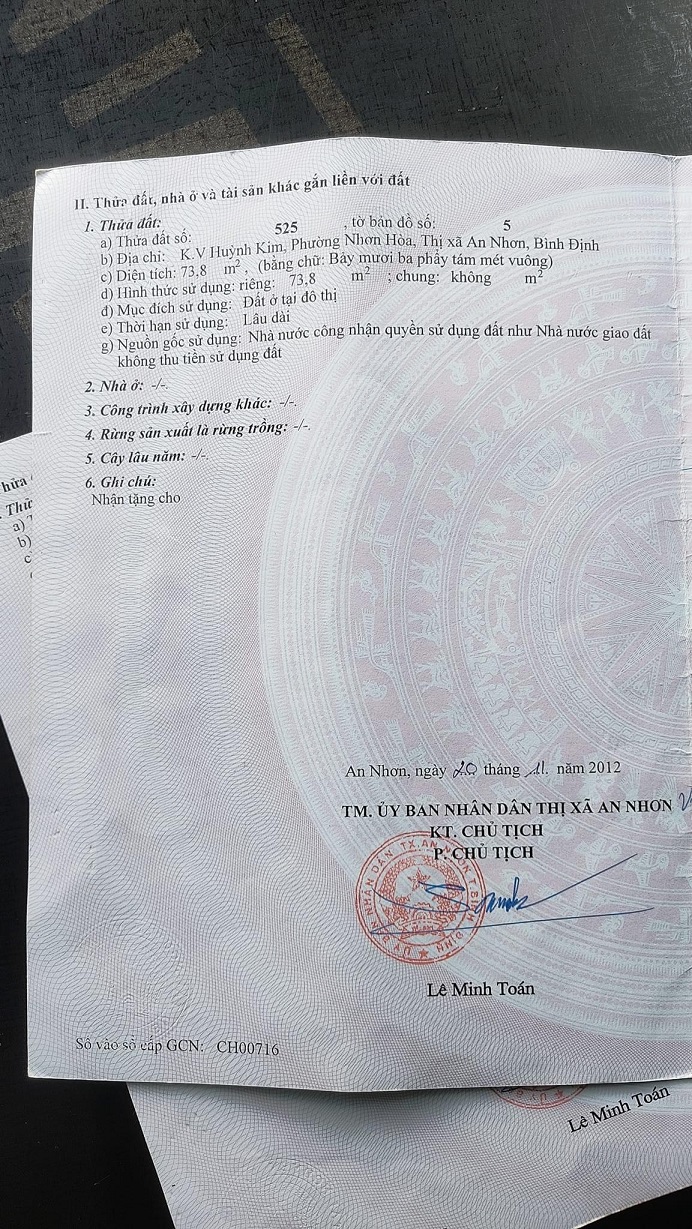 II. Thửa đất, nhà ở và tài sản khác gắn liền với đất
1. Thửa đất:
a) Thửa đất số: 525 , tờ bản đồ số: 5
b) Địa chỉ: K.V Huỳnh Kim, Phường Nhơn Hòa, Thị xã An Nhơn, Bình Định
c) Diện tích: 73,8 m², (bằng chữ: Bảy mươi ba phẩy tám mét vuông)
d) Hình thức sử dụng: riêng: 73,8 m² ; chung: không m²
đ) Mục đích sử dụng: Đất ở tại đô thị
e) Thời hạn sử dụng: Lâu dài
g) Nguồn gốc sử dụng: Nhà nước công nhận quyền sử dụng đất như Nhà nước giao đất
không thu tiền sử dụng đất
2. Nhà ở: -/-.
3. Công trình xây dựng khác: -/-.
4. Rừng sản xuất là rừng trồng: -/-.
5. Cây lâu năm: -/-.
6. Ghi chú:
Nhận tặng cho
An Nhơn, ngày 20 tháng 11. năm 2012
TM. ỦY BAN NHÂN DÂN THỊ XÃ AN NHƠN
KT. CHỦ TỊCH
P. CHỦ TỊCH
ỦY BAN NHÂN DÂN TX.AN NHƠN T.BÌNH ĐỊNH
Lê Minh Toán
Số vào sổ cấp GCN: CH00716
hửa
Thử
a)
b)
Lê Minh Toán